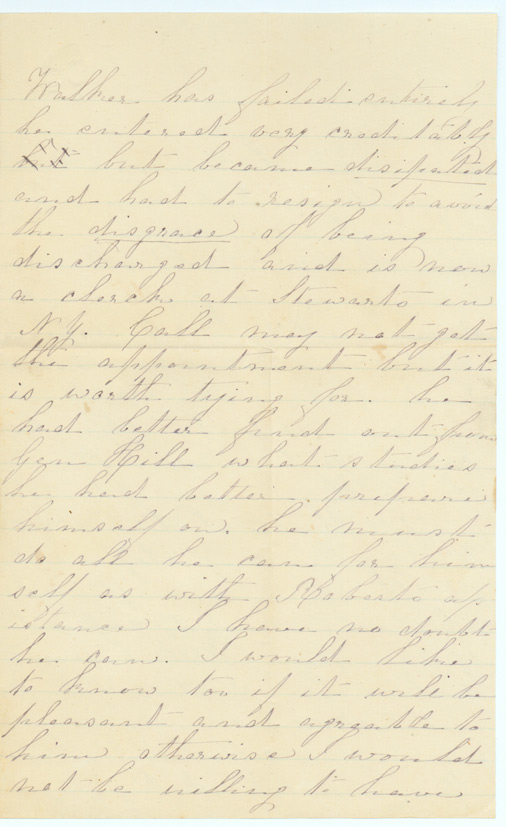 Walker has failed entirely
he entered very creditably
but became disipated
and had to resign to avoid
the disgrace of being
discharged and is now
a clerck at Stewarts in
N.Y. Call may not get
the appointment but it
is worth tying for. he
had better find out from
Gen Hill what studies
he had better prepare
himself on. he must
do all he can for him
self as with Roberts as
istance I have no doubt
he can. I would like
to know too if it will be
pleasant and agreable to
him otherwise I would
not be willing to have